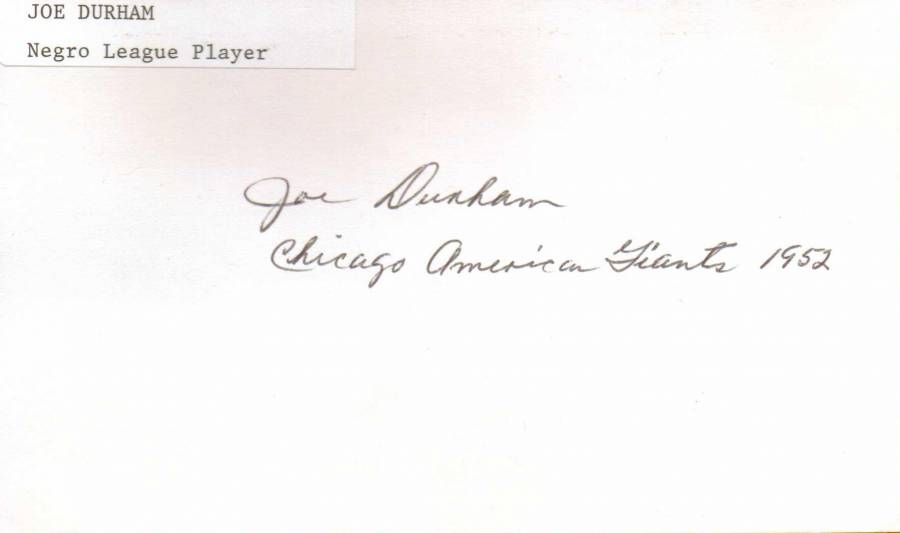 JOE DURHAM
Negro League Player
Joe Durham
Chicago American Giants 1952